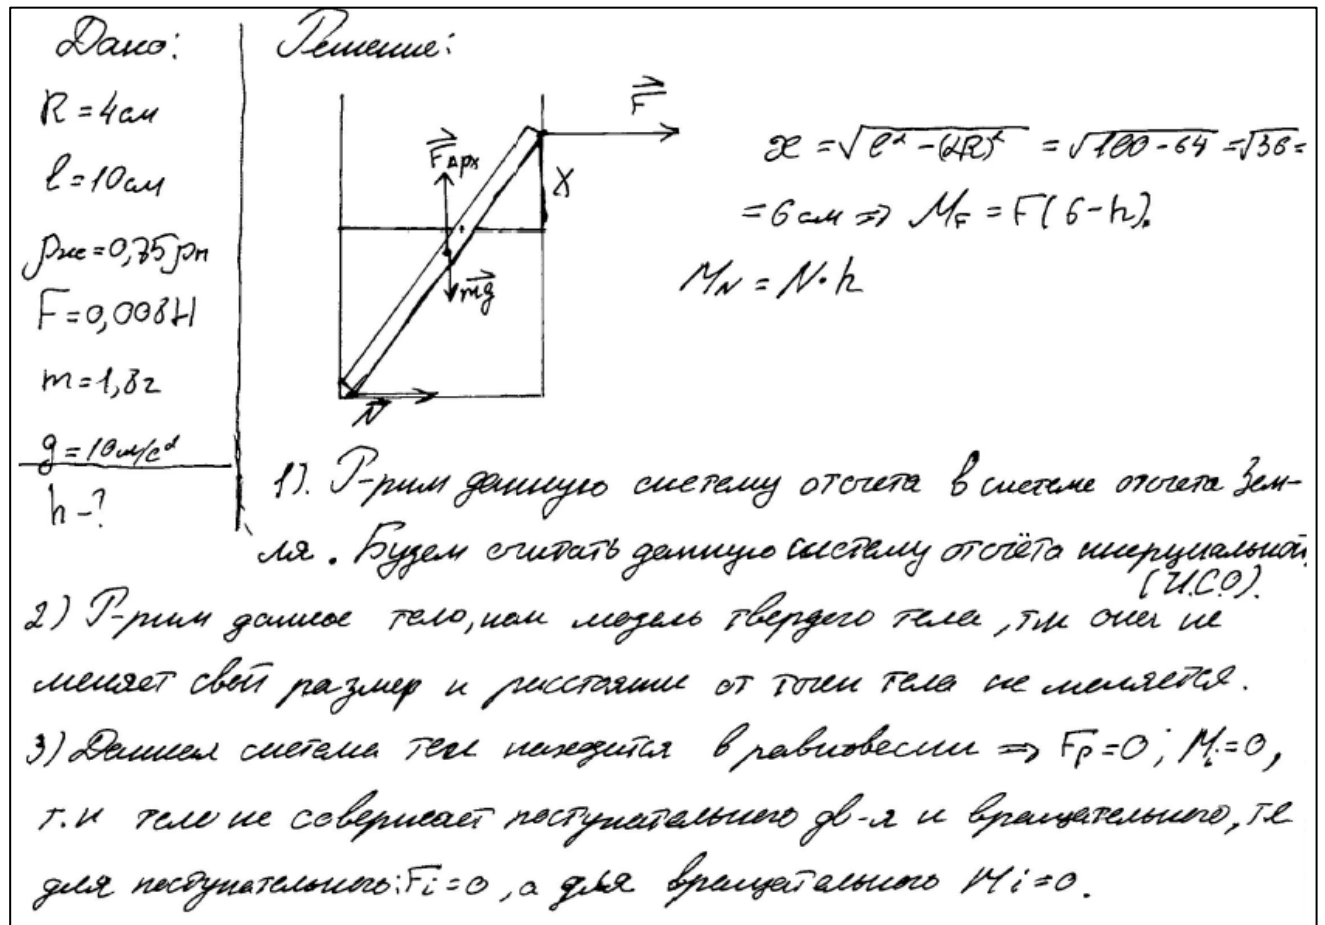 Дано:
R = 4 см
l = 10 см
ρж = 0,75 ρп
F = 0,008 Н
m = 1,8 г
g = 10 м/с²
h - ?
Решение:
F
Fарх
X
mg
N
x = √(l² - (2R)²) = √(100 - 64) = √36 =
= 6 см ⇒ M_F = F(6 - h).
M_N = N · h
1). Р-рим данную систему отсчета в системе отсчета Зем-
ля. Будем считать данную систему отсчёта инерциальной.
(И.С.О).
2) Р-рим данное тело, как модель твердого тела, т.к она не
меняет свой размер и расстояние от точки тела не меняется.
3) Данная система тел находится в равновесии ⇒ Fр = 0; Mi = 0,
т.к тело не совершает поступательного дв-я и вращательного, те
для поступательного: Fi = 0, а для вращательного Mi = 0.